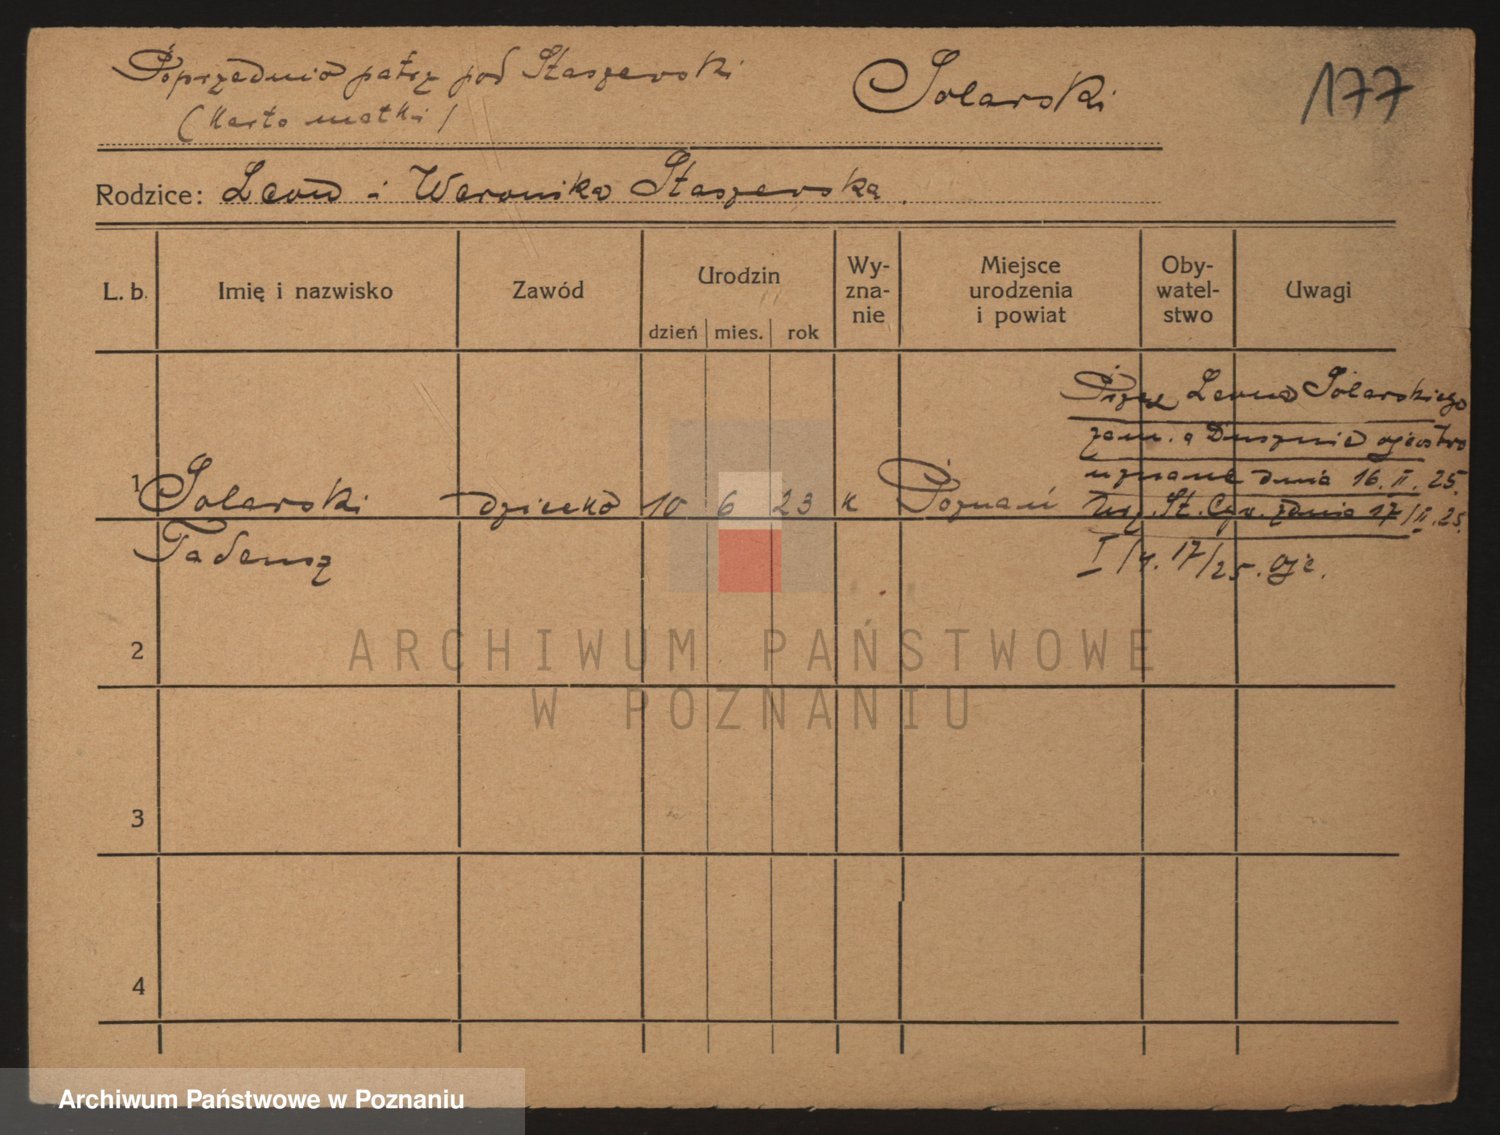 Poprzednio patrz pod Staszewski
(Karta matki)
Solarski
177
Rodzice: Leon i Weronika Staszewska.
L. b.
Imię i nazwisko
Zawód
Urodzin
dzień mies. rok
Wy-
zna-
nie
Miejsce
urodzenia
i powiat
Oby-
watel-
stwo
Uwagi
Przez Leona Solarskiego
zam. a Dusznie ojcostwo
uznane dnia 16. II. 25.
Urz. St. Cyw. z dnia 17/II. 25.
1 Solarski dziecko 10 6 23 k Poznań
Tadeusz
2
3
4
ARCHIWUM PAŃSTWOWE
W POZNANIU
Archiwum Państwowe w Poznaniu